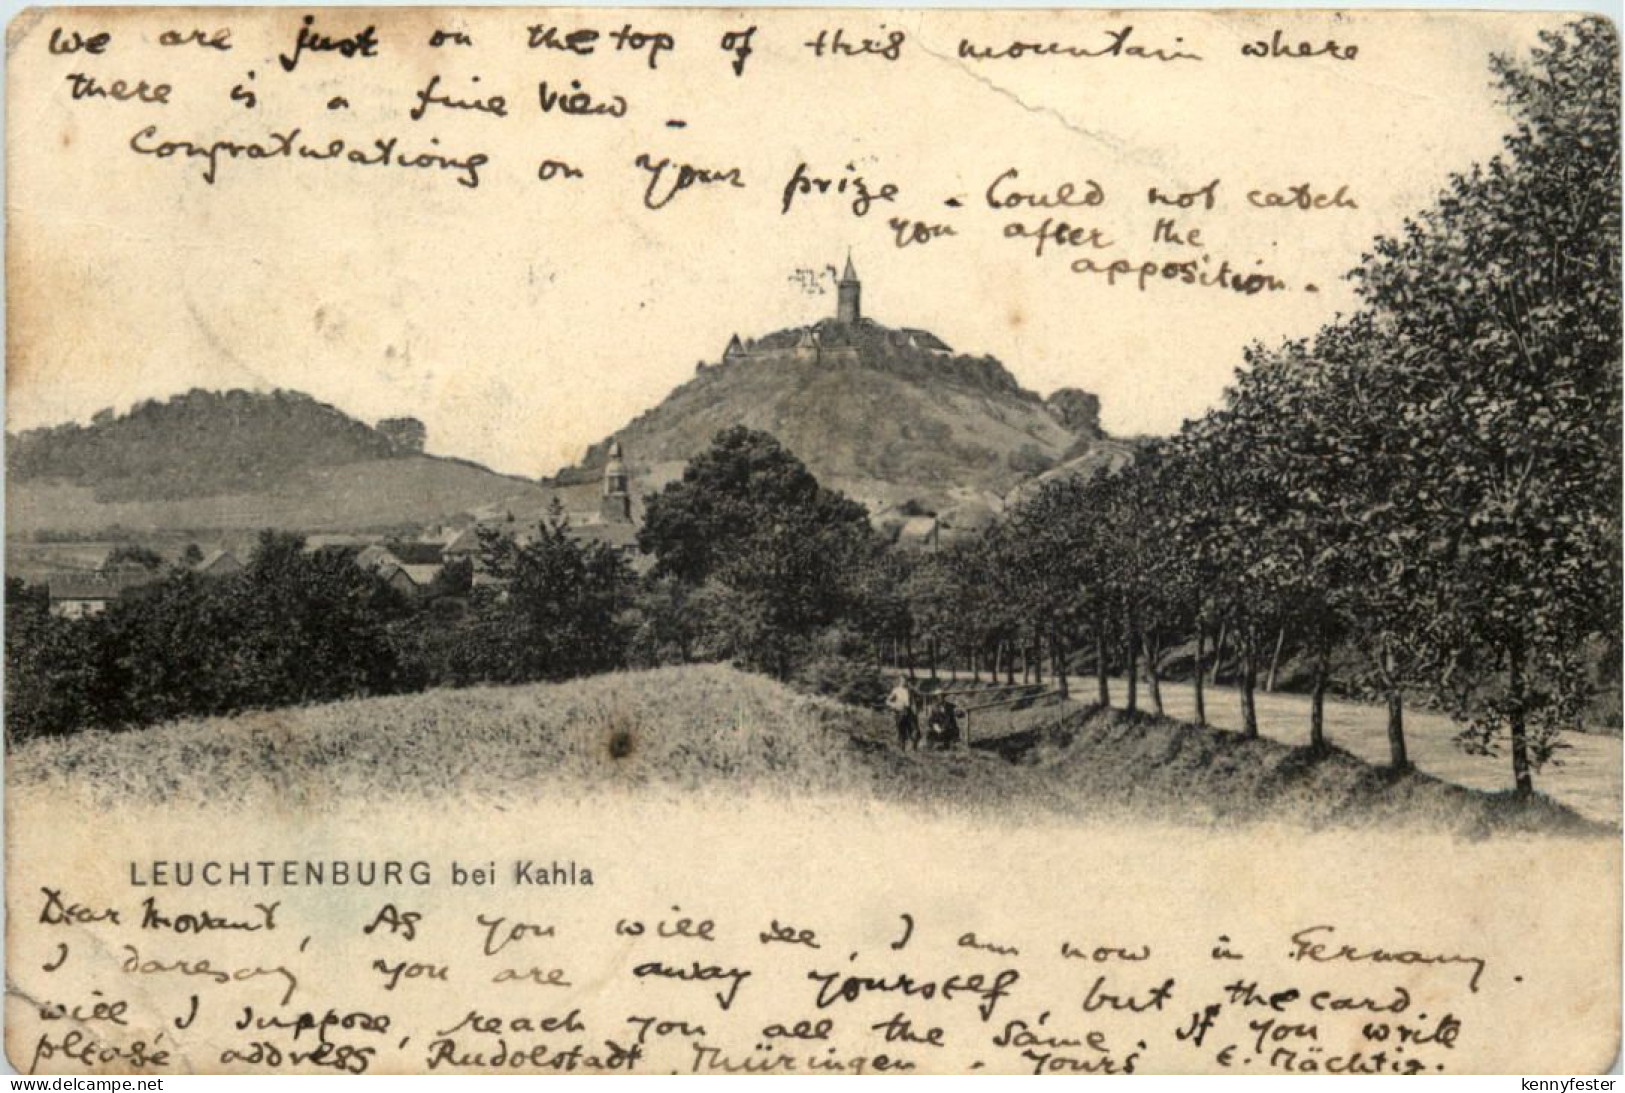 we are just on the top of this mountain where
there is a fine view -
Congratulations on your prize - Could not catch
you after the
apposition.
LEUCHTENBURG bei Kahla
Dear Morant, As you will see, I am now in Germany.
I daresay you are away yourself, but the card
will I suppose, reach you all the same. If you write
please address Rudolstadt, Thüringen - Yours E. Mächtig.
delcampe.net
kennyfester